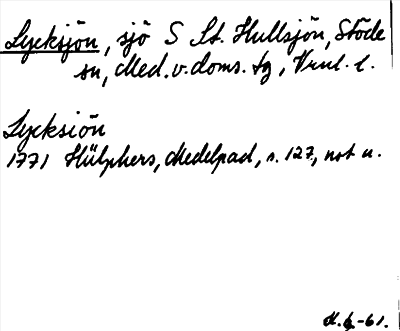 Lycksjön, sjö S St. Hullsjön, Stöde
sn, Med. v. doms. tg, Vrnl. l.
Lycksiön
1771 Hülphers, Medelpad, s. 127, not u.